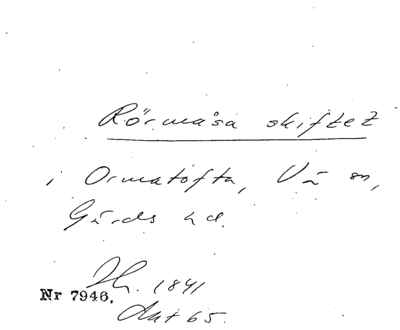 Rörmåsa skiftet
i Ormatofta, Vä sn,
Gärds hd.
1841
Nr 7946.
Akt 65.